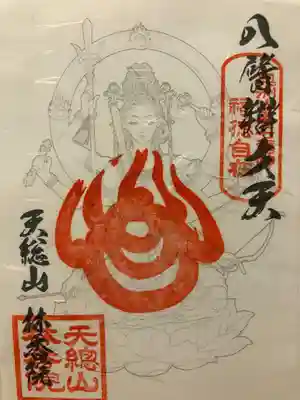 八臂辯才天
福徳自在
天総山
林香院
天總山
林香院